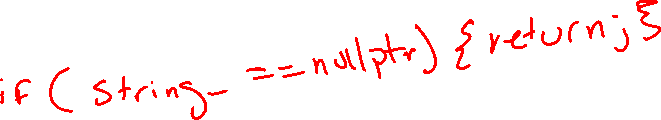 if ( string_ == nullptr) { return; }